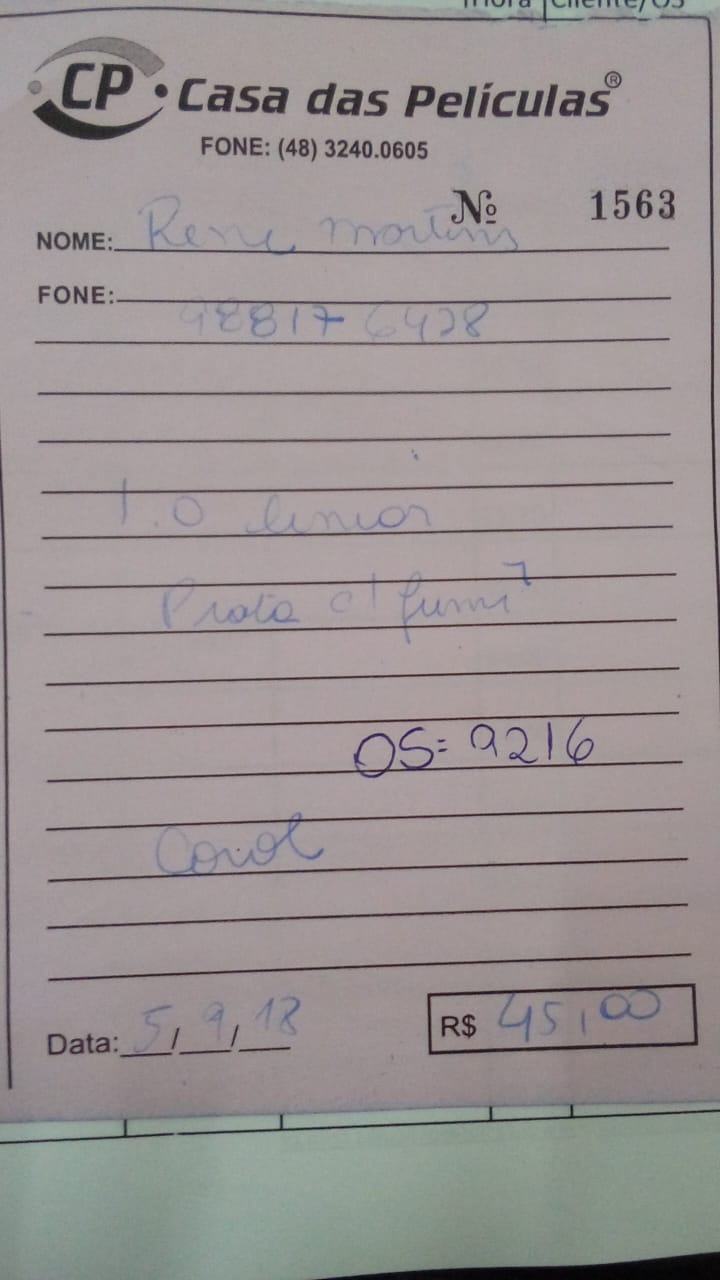 Cliente/OS
CP Casa das Películas®
FONE: (48) 3240.0605
Nº 1563
NOME: Rene Martins
FONE:
98817 6428
1.0 linear
Prata c/ fume 7
OS= 9216
Carol
Data: 5/9/18
R$ 45,00